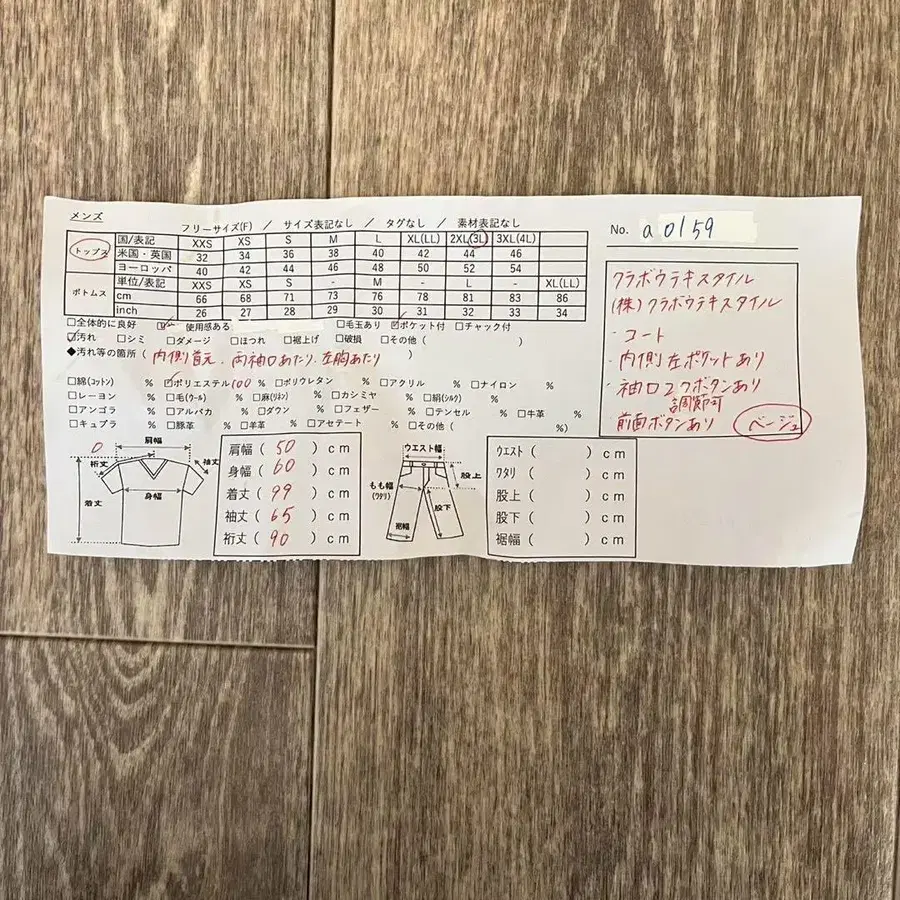 メンズ
フリーサイズ(F) / サイズ表記なし / タグなし / 素材表記なし
トップス
国/表記 XXS XS S M L XL(LL) 2XL(3L) 3XL(4L)
米国・英国 32 34 36 38 40 42 44 46
ヨーロッパ 40 42 44 46 48 50 52 54
ボトムス
単位/表記 XXS XS S - M - L - XL(LL)
cm 66 68 71 73 76 78 81 83 86
inch 26 27 28 29 30 31 32 33 34
□全体的に良好 ☑使用感ある □毛玉あり ☑ポケット付 □チャック付
☑汚れ □シミ □ダメージ □ほつれ □裾上げ □破損 □その他( )
◆汚れ等の箇所( 内側首元、両袖口あたり、左胸あたり )
□綿(コットン) % ☑ポリエステル100 % □ポリウレタン % □アクリル % □ナイロン %
□レーヨン % □毛(ウール) % □麻(リネン) % □カシミヤ % □絹(シルク) %
□アンゴラ % □アルパカ % □ダウン % □フェザー % □テンセル % □牛革 %
□キュプラ % □豚革 % □羊革 % □アセテート % □その他( %)
0
肩幅
裄丈
袖丈
身幅
着丈
肩幅( 50 )cm
身幅( 60 )cm
着丈( 99 )cm
袖丈( 65 )cm
裄丈( 90 )cm
ウエスト幅
股上
もも幅
(ワタリ)
股下
裾幅
ウエスト( )cm
ワタリ( )cm
股上( )cm
股下( )cm
裾幅( )cm
No. a0159
クラボウテキスタイル
(株)クラボウテキスタイル
・コート
・内側左ポケットあり
・袖口2つボタンあり
調節可
前面ボタンあり
ベージュ